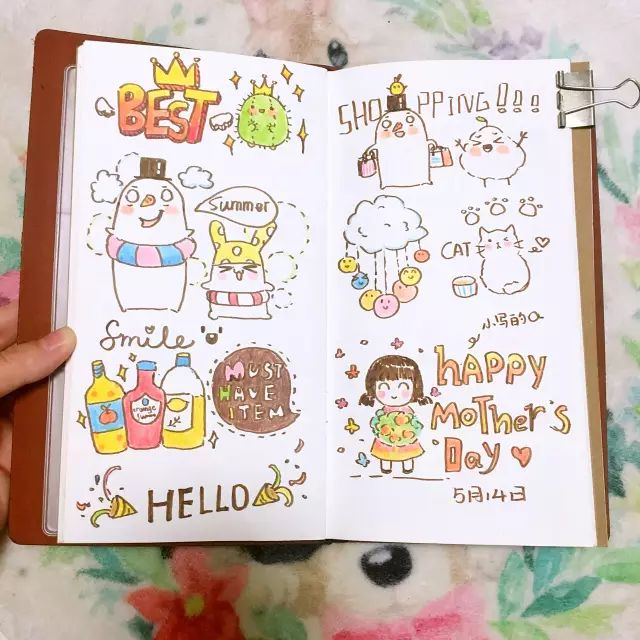 BEST
Summer
Smile
orange
MUST
HAVE
ITEM
HELLO
SHOPPING!!!
CAT
小写的a
HAPPY
MoTHer's
Day
5月14日